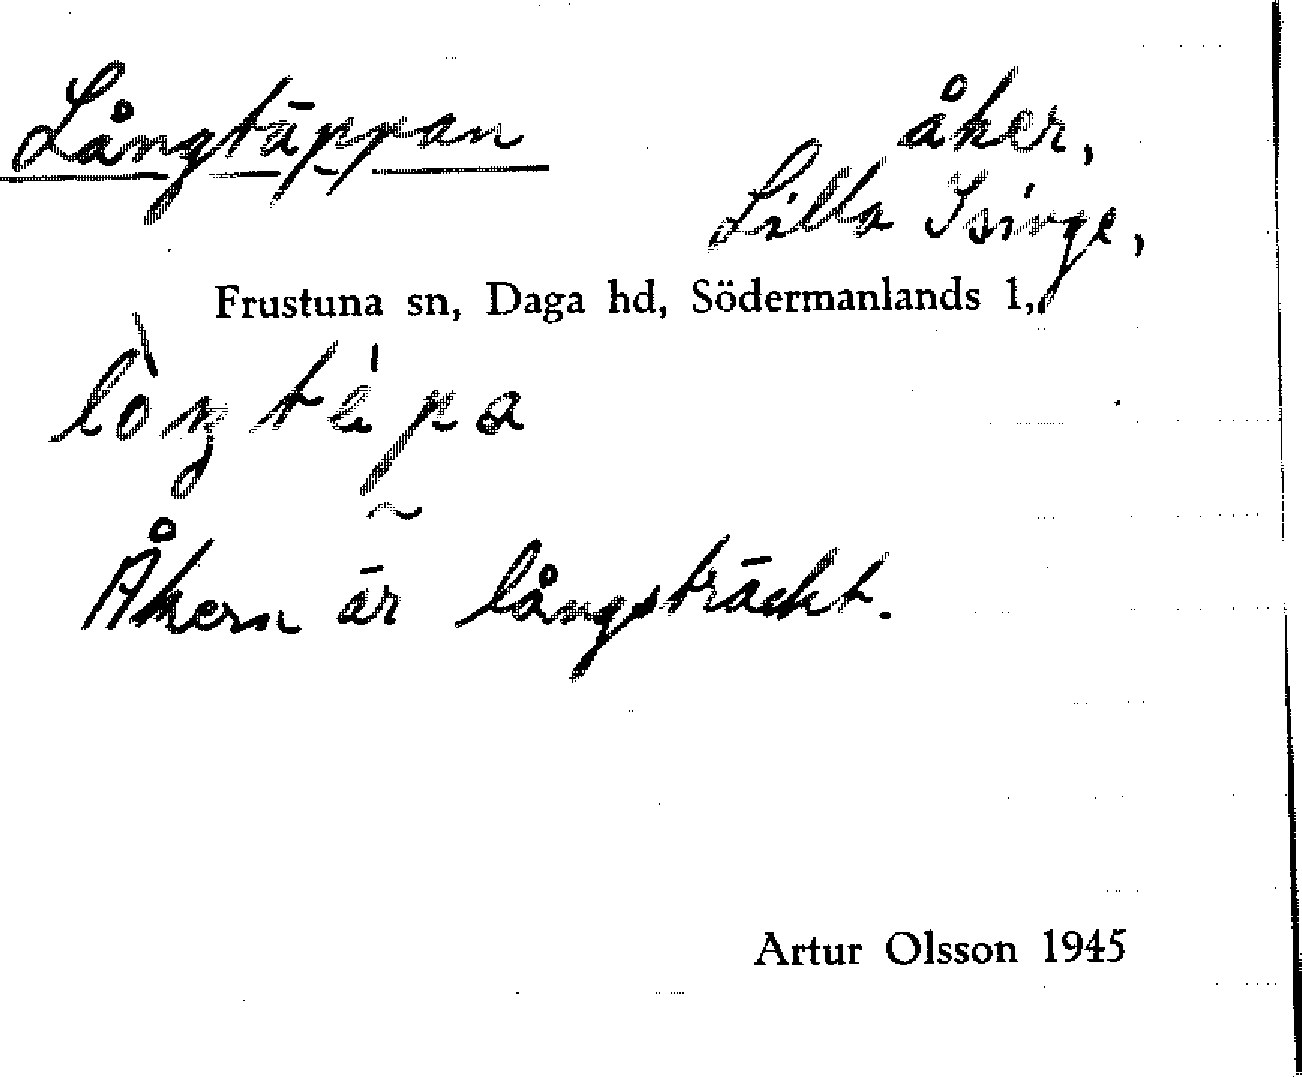 Långtäppan
åker,
Lilla Isinge,
Frustuna sn, Daga hd, Södermanlands l,
Åkern är långsträckt.
Artur Olsson 1945